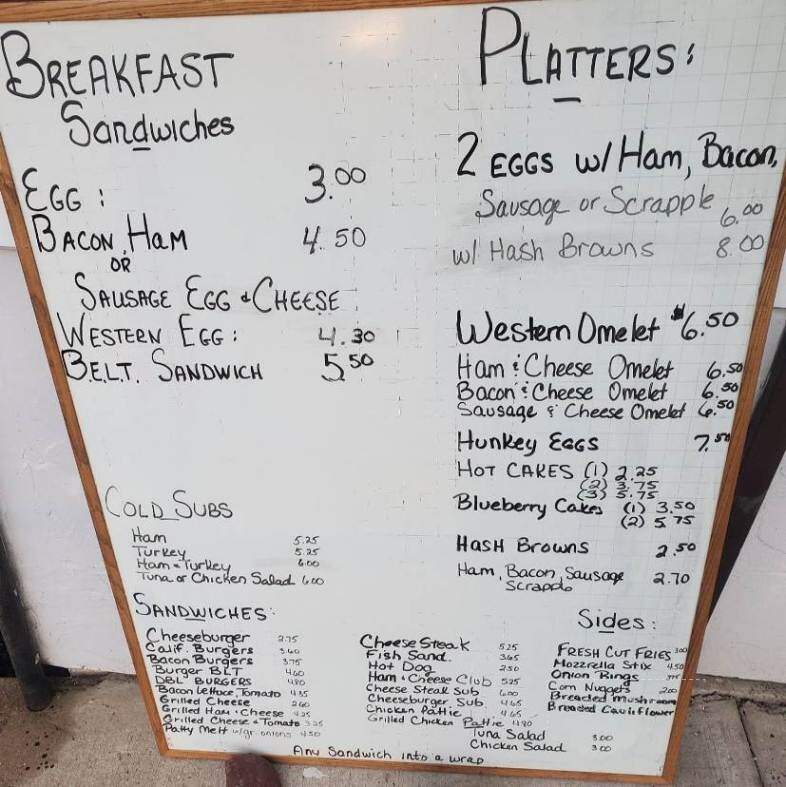 BREAKFAST
Sandwiches
EGG : 3.00
BACON, HAM 4.50
OR
SAUSAGE EGG & CHEESE
WESTERN EGG : 4.30
B.E.L.T. SANDWICH 5.50
PLATTERS:
2 EGGS w/ Ham, Bacon,
Sausage or Scrapple 6.00
w/ Hash Browns 8.00
Western Omelet $6.50
Ham & Cheese Omelet 6.50
Bacon & Cheese Omelet 6.50
Sausage & Cheese Omelet 6.50
Hunkey EGGS 7.50
HOT CAKES (1) 2.25
(2) 3.75
(3) 5.75
Blueberry Cakes (1) 3.50
(2) 5.75
HASH BROWNS 2.50
Ham, Bacon, Sausage 2.70
Scrapple
COLD SUBS
Ham 5.25
Turkey 5.25
Ham & Turkey 6.00
Tuna or Chicken Salad 6.00
SANDWICHES:
Cheeseburger 2.75
Calif. Burgers 3.60
Bacon Burgers 3.75
Burger BLT 4.60
DBL BURGERS 4.80
Bacon Lettuce, Tomato 4.35
Grilled Cheese 2.60
Grilled Ham & Cheese 4.25
Grilled Cheese & Tomato 3.25
Patty Melt w/gr onions 4.50
Cheese Steak 5.25
Fish Sand. 3.65
Hot Dog 2.50
Ham & Cheese Club 5.25
Cheese Steak Sub 6.00
Cheeseburger Sub 4.65
Chicken Pattie 4.65
Grilled Chicken Pattie 4.90
Tuna Salad 3.00
Chicken Salad 3.00
Sides:
FRESH CUT FRIES 3.00
Mozzrella Stix 4.50
Onion Rings
Corn Nuggets 2.00
Breaded Mushroom
Breaded Cauliflower
Any Sandwich into a wrap